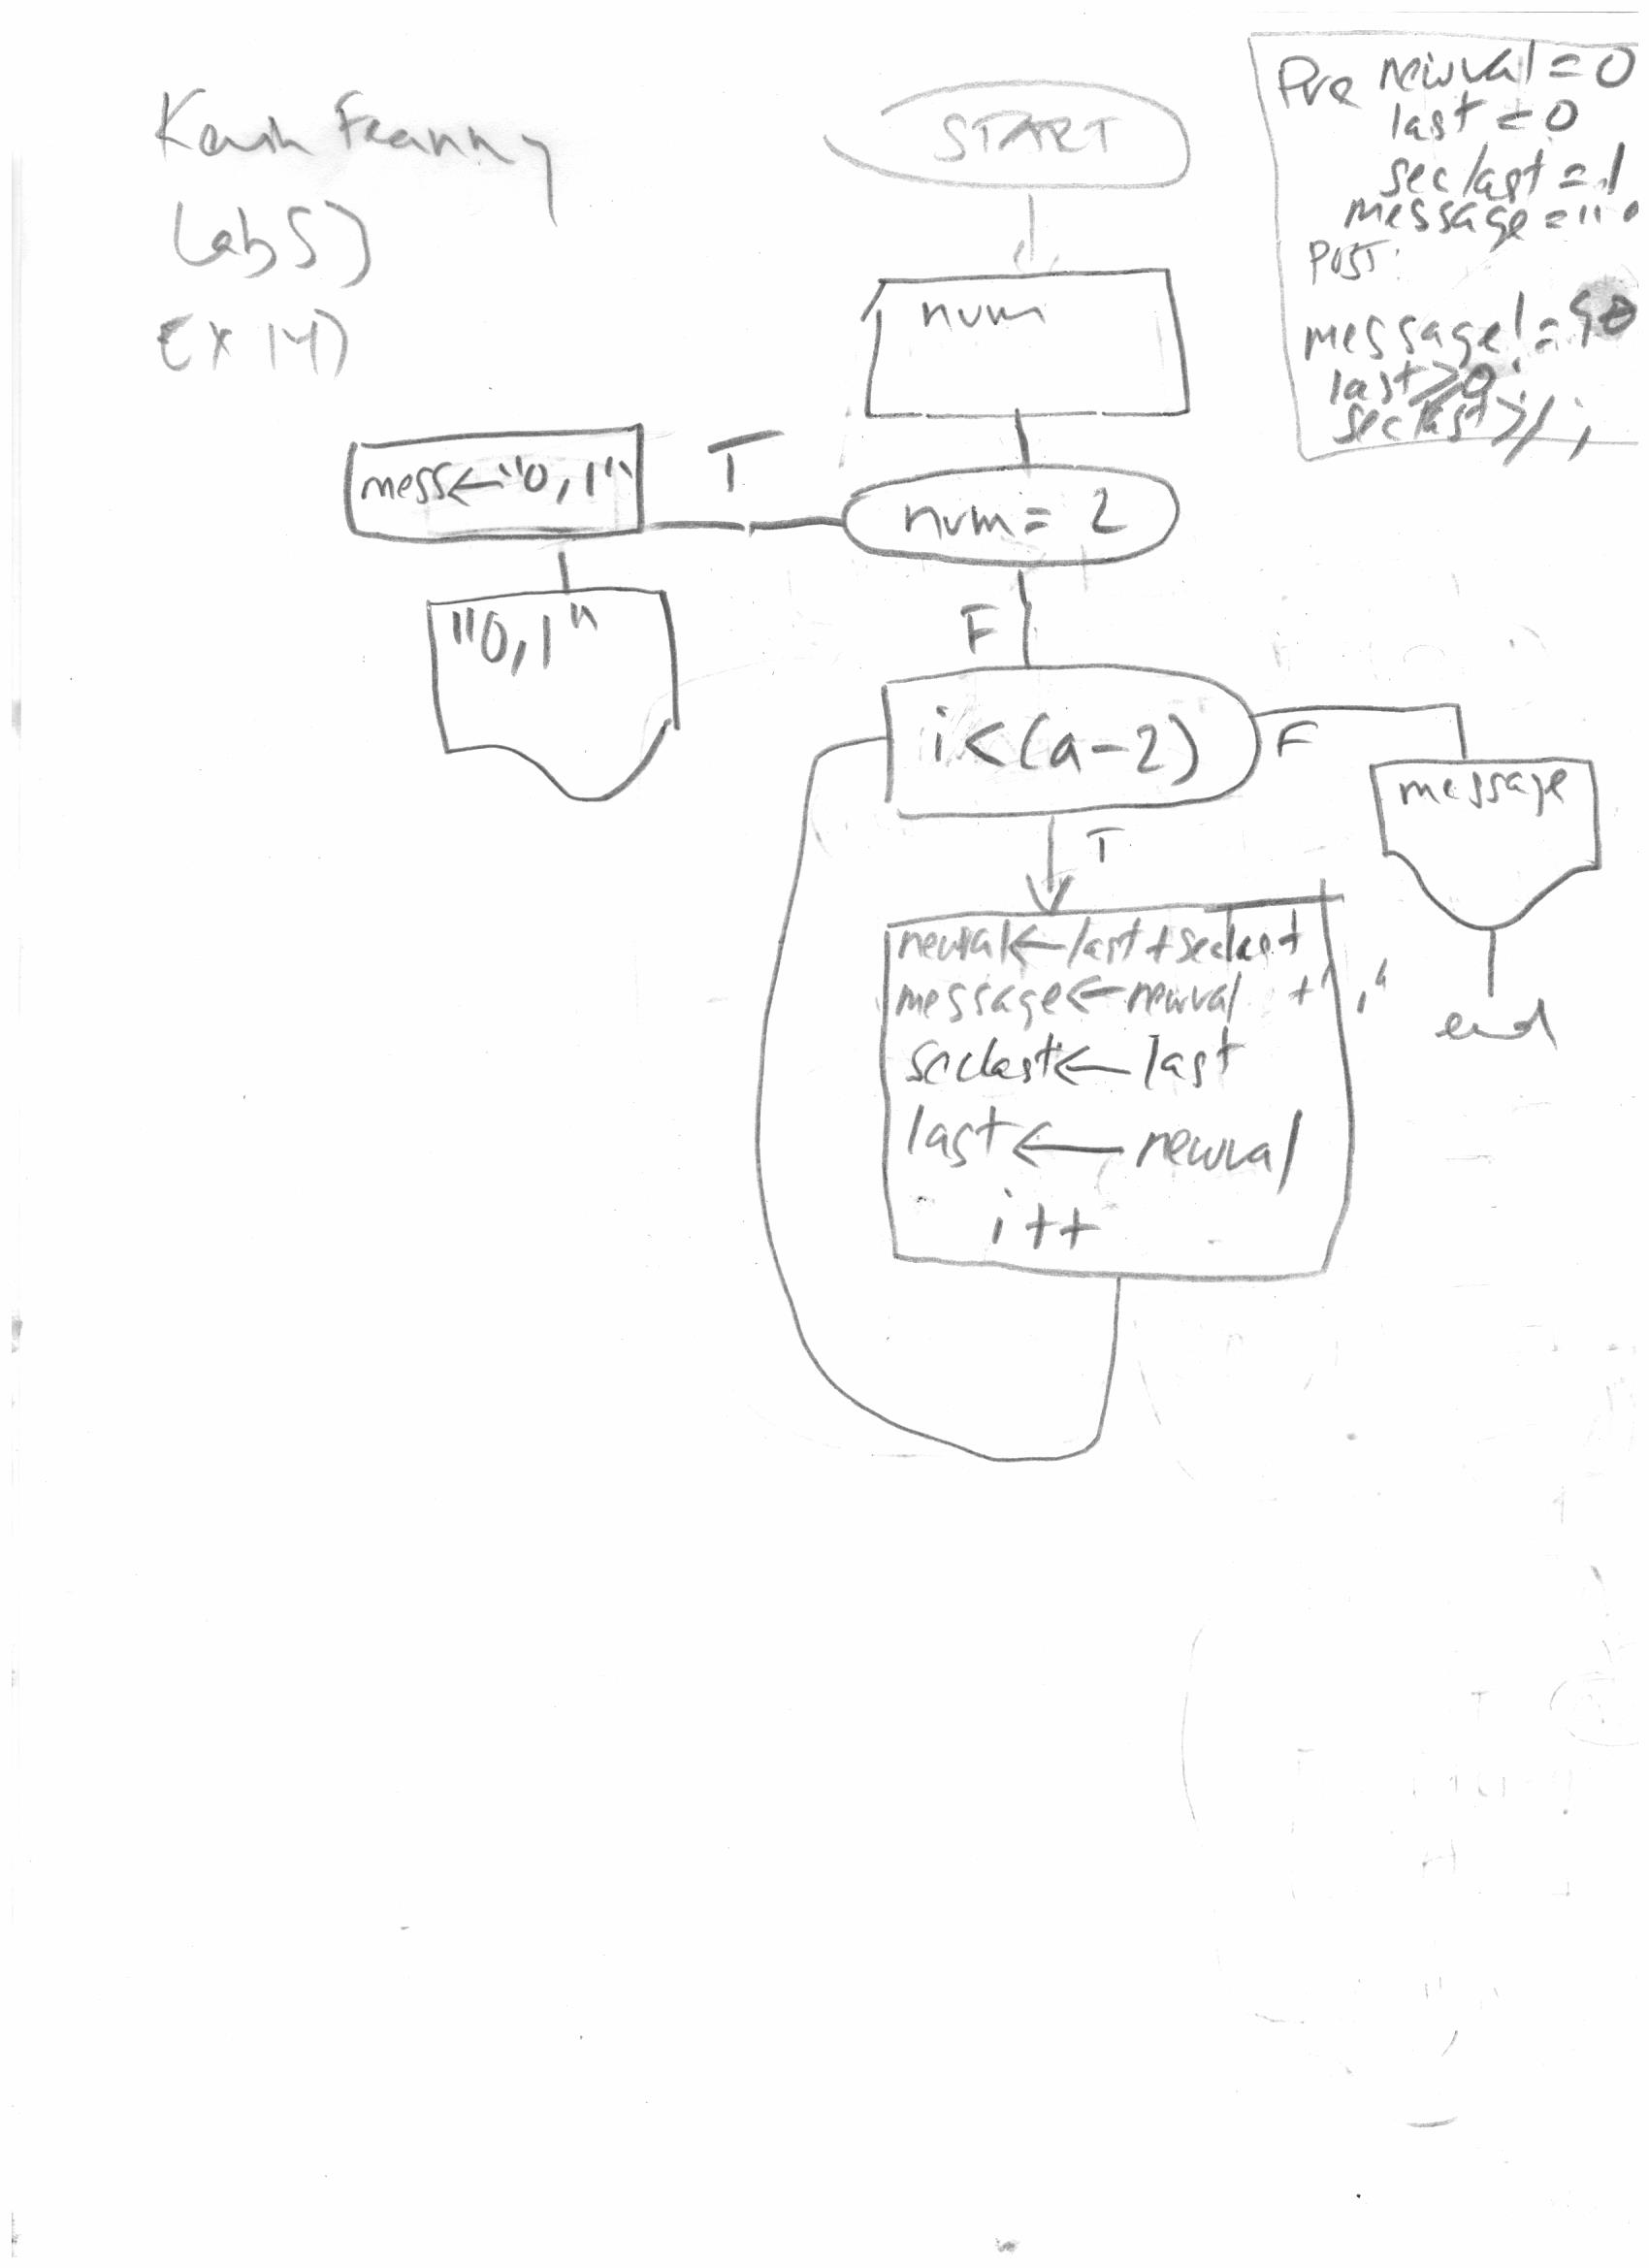 START
Lab 5)
Ex 14)
Pre newval = 0
last = 0
seclast = 1
message = "
POST:
message! =
last ≥ 0;
seclast ≥ 1;
num
num = 2
T
mess ← "0,1"
"0,1"
F
i < (a-2)
F
message
end
T
newval ← last + seclast
message ← newval + ","
seclast ← last
last ← newval
i++